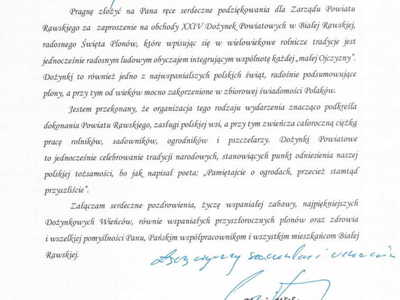 Pragnę złożyć na Pana ręce serdeczne podziękowania dla Zarządu Powiatu
Rawskiego za zaproszenie na obchody XXIV Dożynek Powiatowych w Białej Rawskiej,
radosnego Święta Plonów, które wpisując się w wielowiekowe rolnicze tradycje jest
jednocześnie radosnym ludowym obyczajem integrującym wspólnotę każdej „małej Ojczyzny”.
Dożynki to również jedno z najwspanialszych polskich świąt, radośnie podsumowujące
plony, a przy tym od wieków mocno zakorzenione w zbiorowej świadomości Polaków.
Jestem przekonany, że organizacja tego rodzaju wydarzenia znacząco podkreśla
dokonania Powiatu Rawskiego, zasługi polskiej wsi, a przy tym zwieńcza całoroczną ciężką
pracę rolników, sadowników, ogrodników i pszczelarzy. Dożynki Powiatowe
to jednocześnie celebrowanie tradycji narodowych, stanowiących punkt odniesienia naszej
polskiej tożsamości, bo jak napisał poeta: „Pamiętajcie o ogrodach, przecież stamtąd
przyszliście”.
Załączam serdeczne pozdrowienia, życzę wspaniałej zabawy, najpiękniejszych
Dożynkowych Wieńców, równie wspaniałych przyszłorocznych plonów oraz zdrowia
i wszelkiej pomyślności Panu, Pańskim współpracownikom i wszystkim mieszkańcom Białej
Rawskiej.